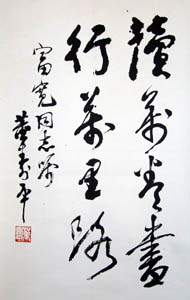 讀萬卷書
行萬里路
富寬同志屬
董壽平